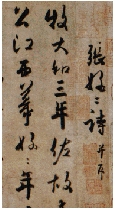 張好〻詩 并序
牧大和三年佐故
公江西幕好〻年